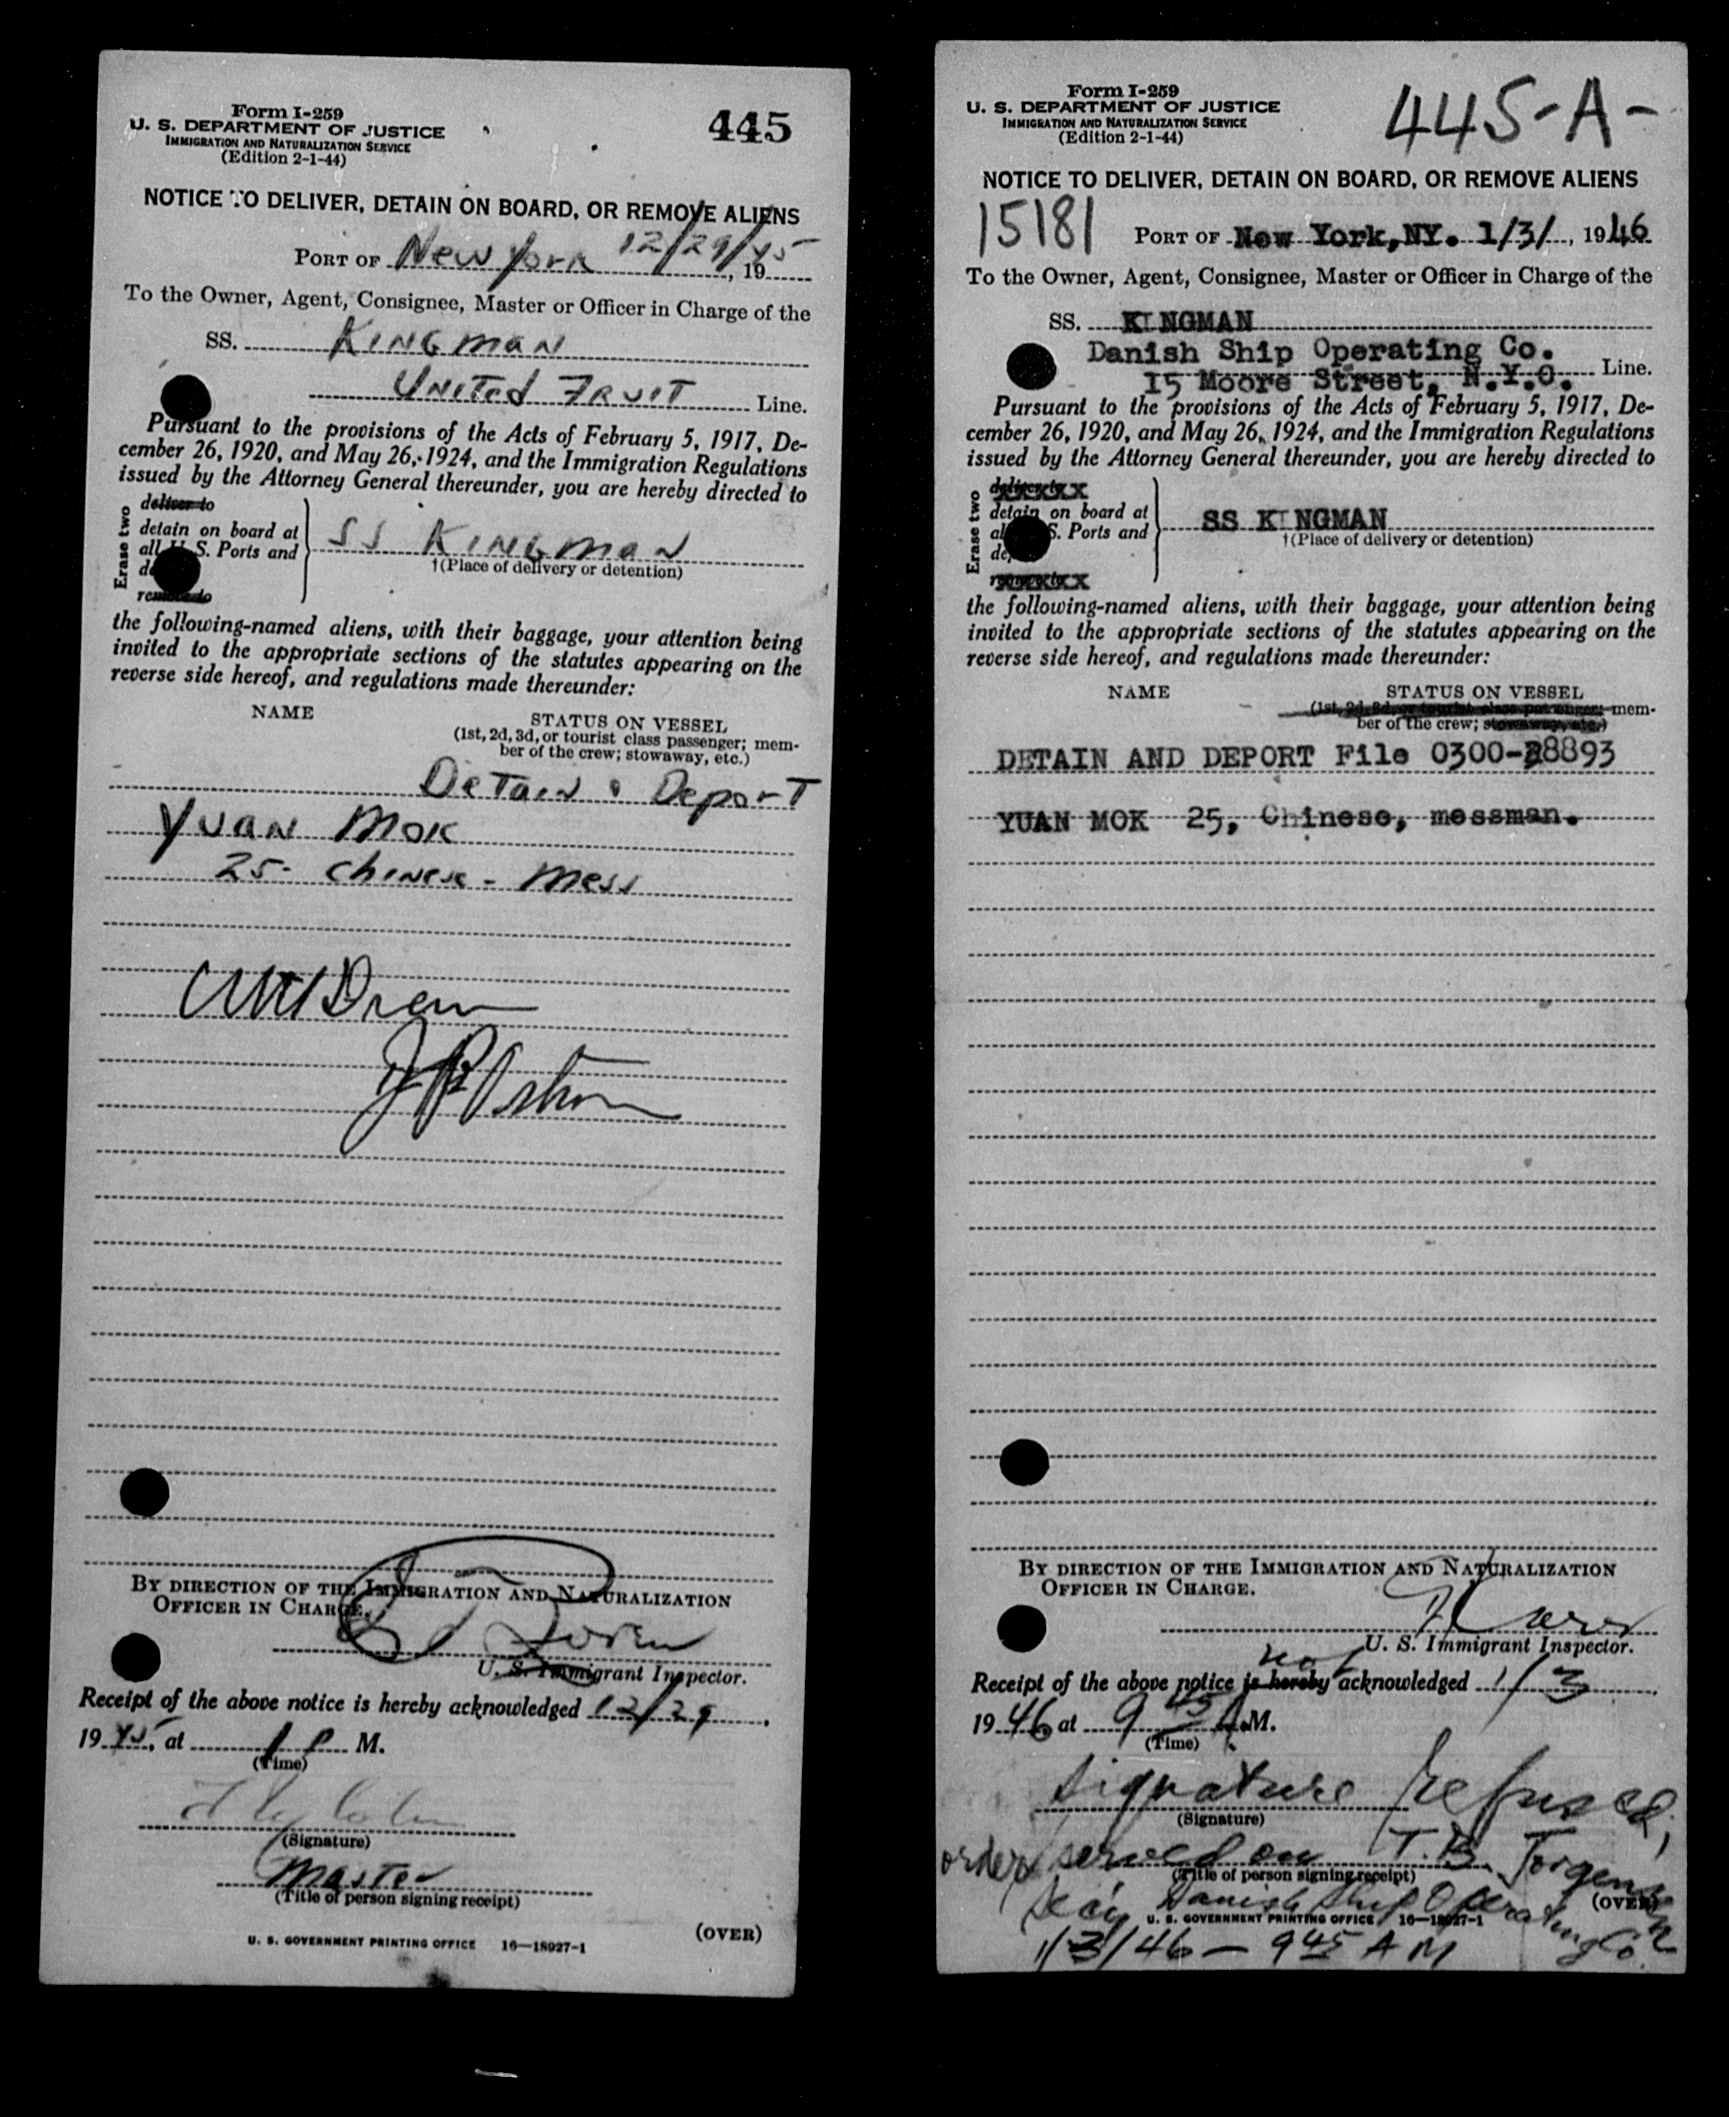 Form I-259
U. S. DEPARTMENT OF JUSTICE
IMMIGRATION AND NATURALIZATION SERVICE
(Edition 2-1-44)
445
NOTICE TO DELIVER, DETAIN ON BOARD, OR REMOVE ALIENS
PORT OF New York 12/29/45, 19
To the Owner, Agent, Consignee, Master or Officer in Charge of the
SS. KINGMAN
UNITED FRUIT Line.
Pursuant to the provisions of the Acts of February 5, 1917, De-
cember 26, 1920, and May 26, 1924, and the Immigration Regulations
issued by the Attorney General thereunder, you are hereby directed to
Erase two
deliver to
detain on board at
all U. S. Ports and
remove to
SS KINGMAN
†(Place of delivery or detention)
the following-named aliens, with their baggage, your attention being
invited to the appropriate sections of the statutes appearing on the
reverse side hereof, and regulations made thereunder:
NAME
STATUS ON VESSEL
(1st, 2d, 3d, or tourist class passenger; mem-
ber of the crew; stowaway, etc.)
Detain & Deport
YUAN MOK
25- Chinese - Mess
BY DIRECTION OF THE IMMIGRATION AND NATURALIZATION
OFFICER IN CHARGE.
U. S. Immigrant Inspector.
Receipt of the above notice is hereby acknowledged 12/29,
1945, at 1 P M.
(Time)
(Signature)
Master
(Title of person signing receipt)
(OVER)
U. S. GOVERNMENT PRINTING OFFICE 16—18927-1
Form I-259
U. S. DEPARTMENT OF JUSTICE
IMMIGRATION AND NATURALIZATION SERVICE
(Edition 2-1-44)
445-A-
NOTICE TO DELIVER, DETAIN ON BOARD, OR REMOVE ALIENS
15181
PORT OF New York,NY. 1/3/, 1946
To the Owner, Agent, Consignee, Master or Officer in Charge of the
SS. KINGMAN
Danish Ship Operating Co.
15 Moore Street, N.Y.C. Line.
Pursuant to the provisions of the Acts of February 5, 1917, De-
cember 26, 1920, and May 26, 1924, and the Immigration Regulations
issued by the Attorney General thereunder, you are hereby directed to
Erase two
deliver to
detain on board at
S. Ports and
remove to
SS KINGMAN
†(Place of delivery or detention)
the following-named aliens, with their baggage, your attention being
invited to the appropriate sections of the statutes appearing on the
reverse side hereof, and regulations made thereunder:
NAME
STATUS ON VESSEL
(1st, 2d, 3d, or tourist class passenger; mem-
ber of the crew; stowaway, etc.)
DETAIN AND DEPORT File 0300-28893
YUAN MOK 25, Chinese, messman.
BY DIRECTION OF THE IMMIGRATION AND NATURALIZATION
OFFICER IN CHARGE.
U. S. Immigrant Inspector.
not
Receipt of the above notice is hereby acknowledged 1/3,
1946 at 9 45 A.M.
(Time)
Signature Refused,
(Signature)
order served on T.B. Torgensen
(Title of person signing receipt)
Sec'y Danish Ship Operating Co.
(OVER)
U. S. GOVERNMENT PRINTING OFFICE 16—18927-1
1/3/46 — 9 45 A M